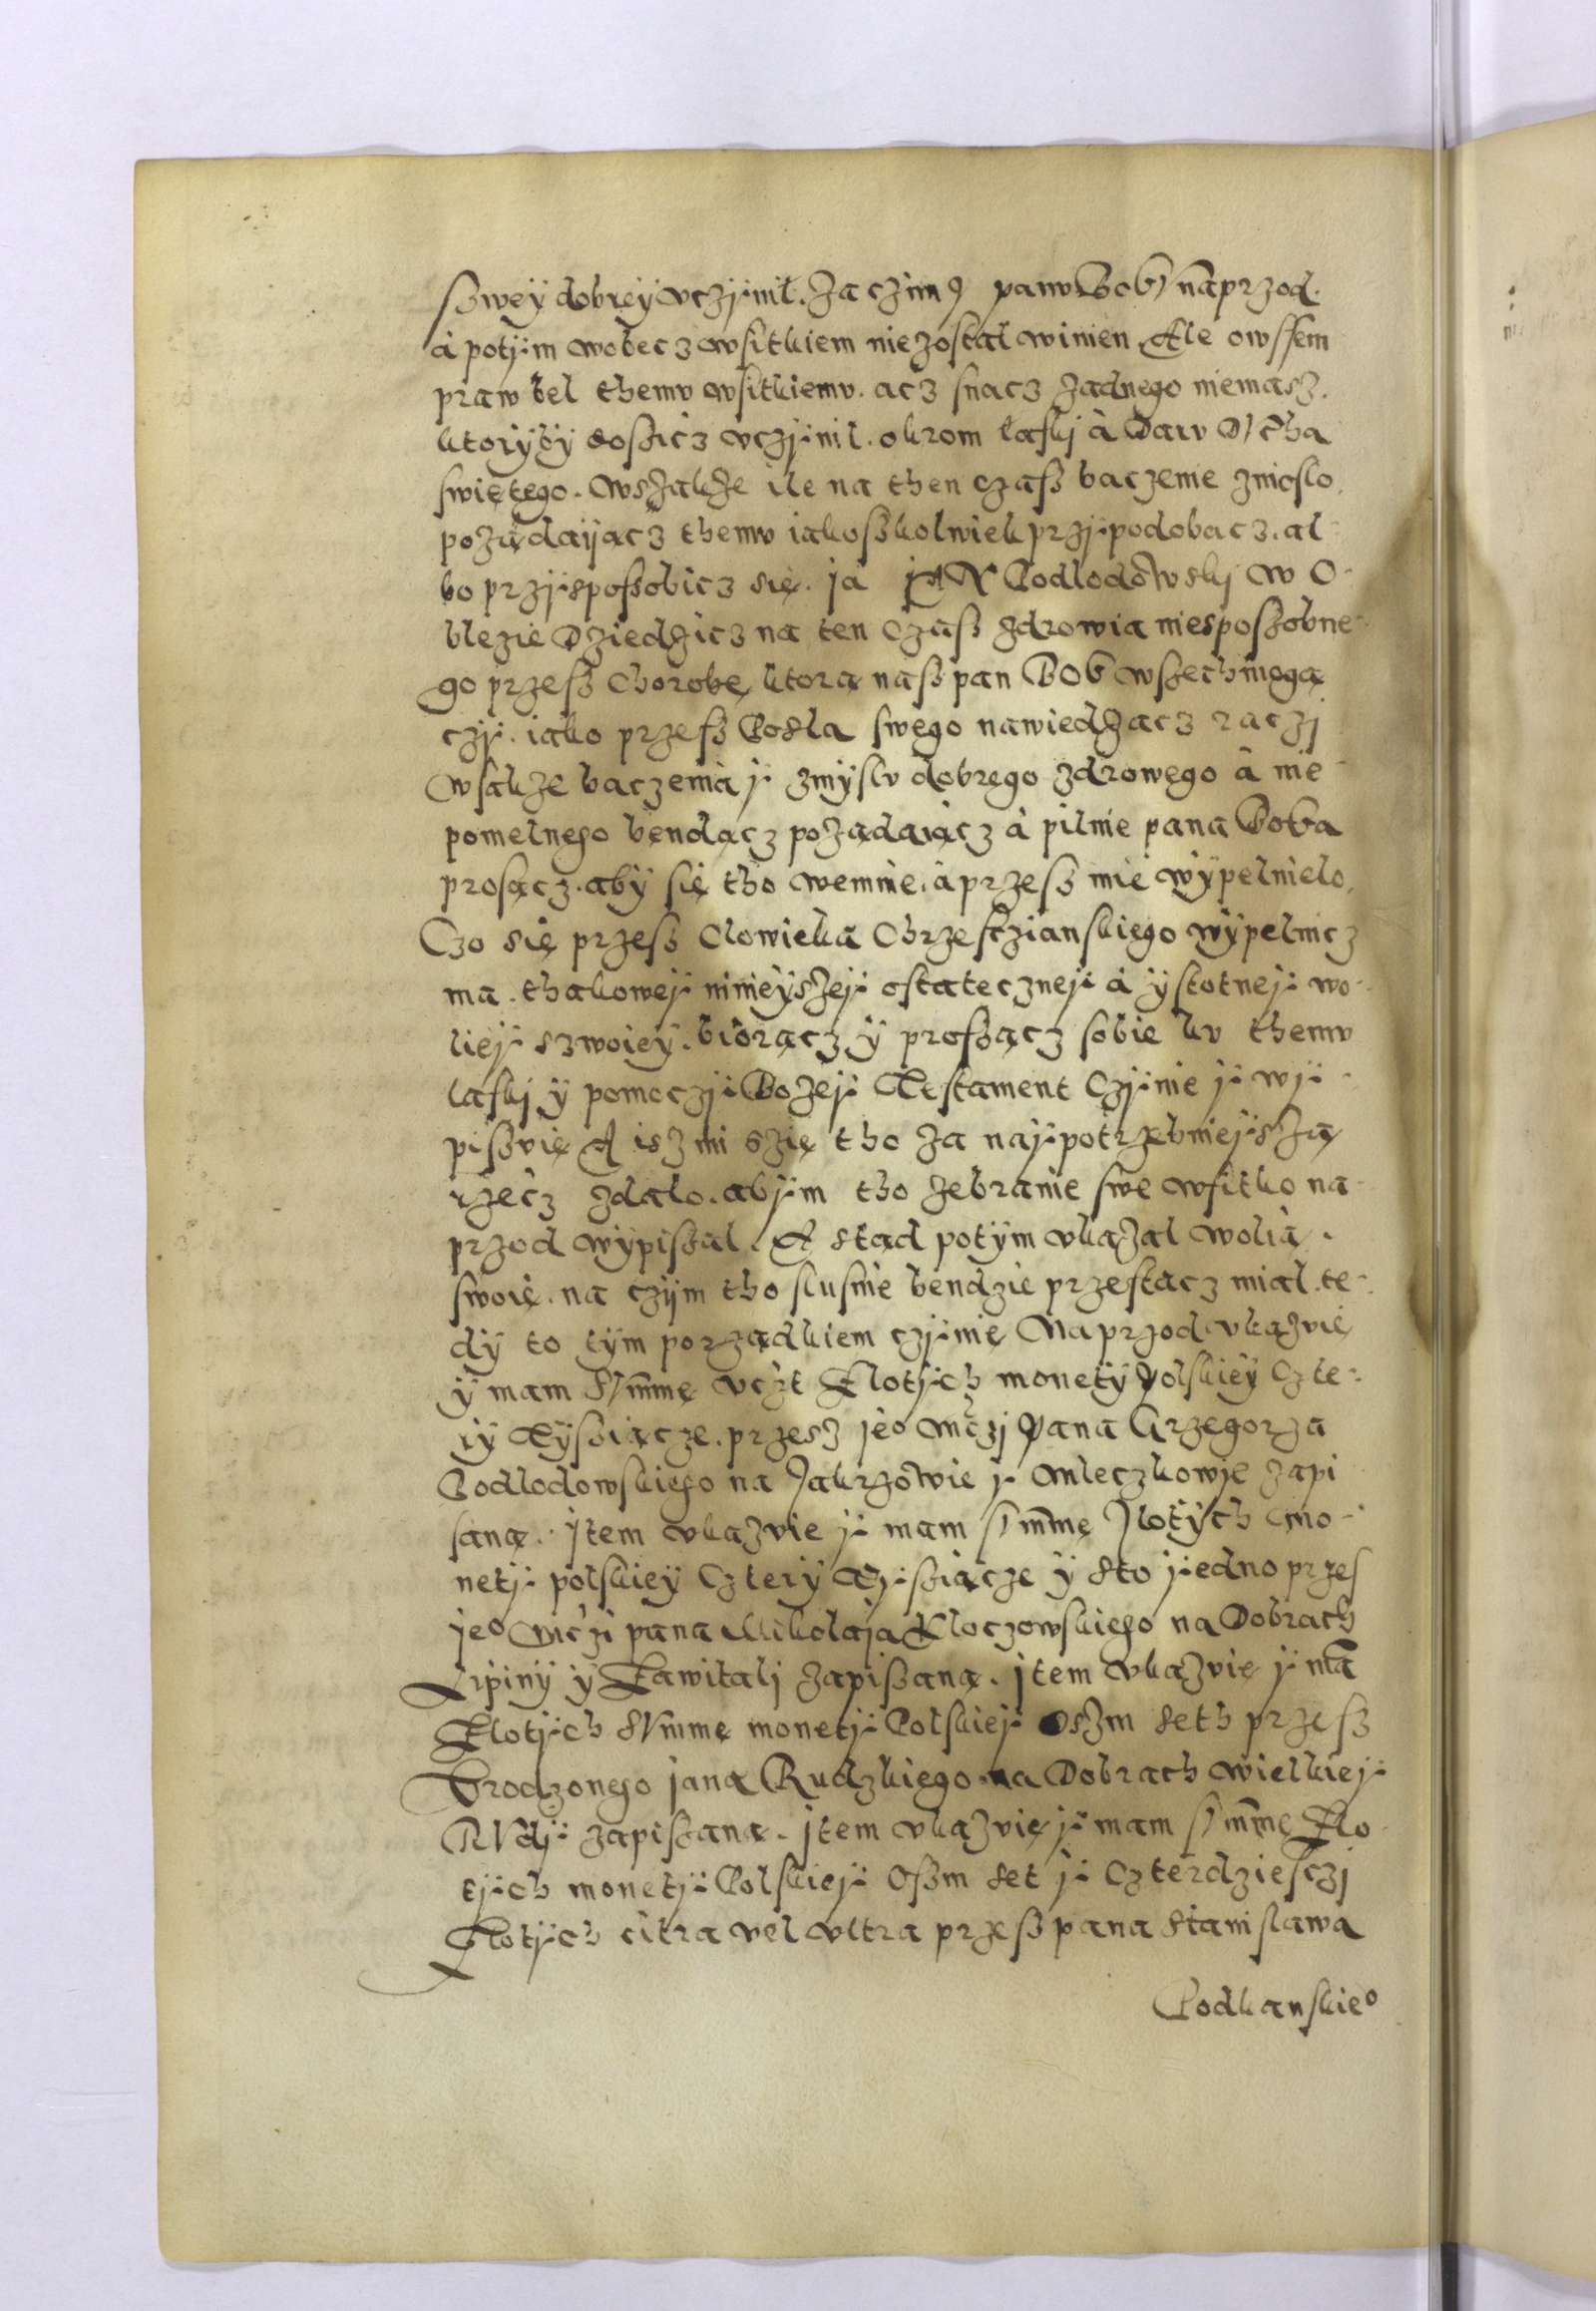 szwey dobrey vczÿnił. Za czim y panv Bogv naprzod.
à potÿm wobecz wsitkiem nie został winien Ale owssem
praw bel themv wsitkiemv. acz snacz żadnego niemasz.
ktorÿbÿ dosÿcz vczÿnil. okrom łaskj à Darv Dvcha
swiętego. Wszakże ile na then czass baczenie zniosło.
pożądaijącz themv iakoszkolwiek przÿpodobacz. al-
bo przÿsposzobicz się. ja JAN Podlodowskj w O-
blezie Dziedzicz na ten Czass zdrowia niesposzobne-
go przesz Chorobę ktorą nasz pan BOG wszechmogą
czÿ. iako przesz Posła swego nawiedzacz raczj
wsakże baczenia ÿ zmÿslv dobrego zdrowego à nie
pomelnego będącz pożądaiącz à pilnie pana Boga
prosącz. abÿ się tho wemnie. à przesz mie wÿpełnieło.
Czo się przesz Clowieka Chrzescziańskiego wÿpełnicz
ma. thakoweÿ ninieÿszeÿ ostateczneÿ à ÿstotneÿ wo-
lieÿ szwoieÿ. biorącz ÿ proszącz sobie kv themv
łaskj ÿ pomoczÿ Bożeÿ Testament Czÿnie ÿ wÿ-
piszvię A isz mi szię tho za naÿpotrzebnieÿszą
rzecz zdało. abÿm tho zebranie swe wsitko na-
przod wÿpiszał. A stąd potÿm vkazał wolią.
swoię. na czÿm tho słusnie bendzie przestacz miał. te-
dÿ to tÿm porządkiem czÿnię Naprzod vkazvię
ÿ mam Svmmę vczt Złotÿch monetÿ Polskieÿ Czte-
rÿ Tÿsziącze. przesz jeo Mczj Pana Grzegorza
Podlodowskiego na Zakrzowie ÿ Mleczkowie zapi
saną. jtem vkazvie ÿ mam svmmę Złotÿch mo-
netÿ polskieÿ Czterÿ Tÿsziącze ÿ sto ÿedno przes
jeo Mczi pana Mikołaja Kloczowskiego na Dobrach
Lipinÿ ÿ Zawitalj zapiszaną. jtem vkazvię ÿ mā
Złotÿch Svmmę monetÿ Polskieÿ oszm seth przesz
Vrodzonego jana Rudzkiego na Dobrach wielkieÿ
RVdÿ zapiszaną. jtem vkazvię ÿ mam svmmę Zło-
tÿch monetÿ Polskieÿ Oszm set ÿ Czterdziesczj
Złotÿch citra vel vltra przesz pana Stanisława
Podkanskieo